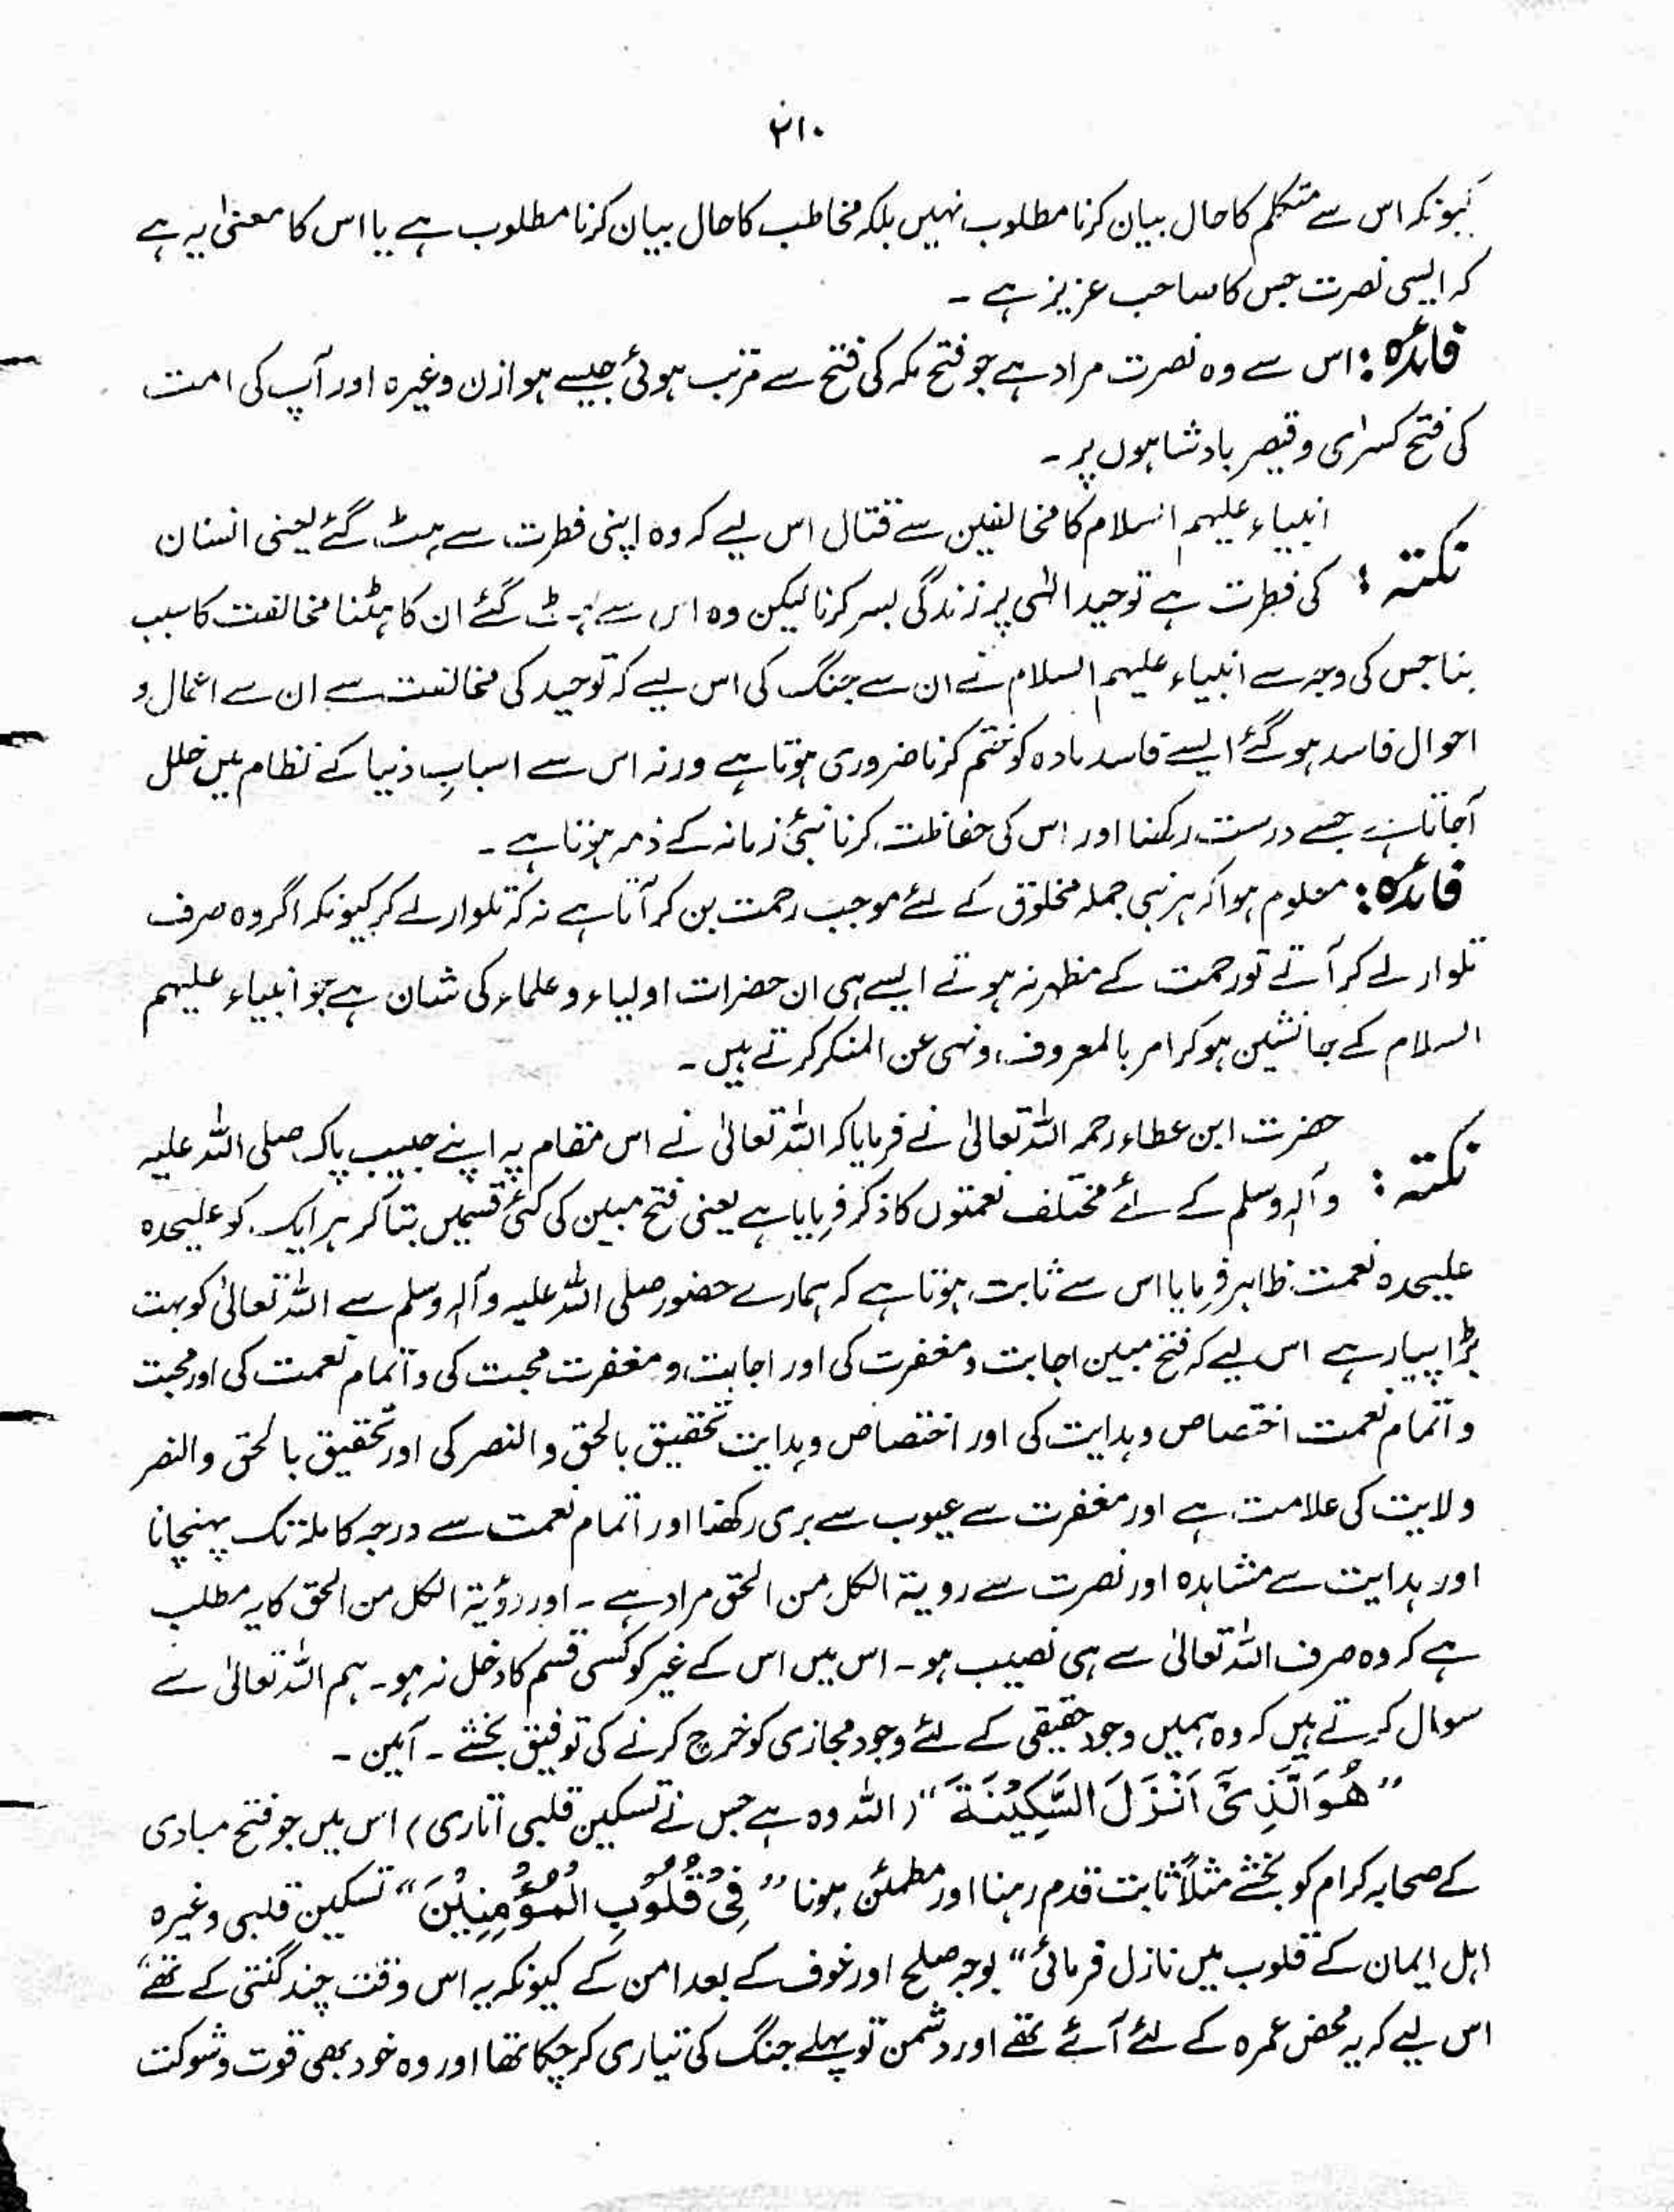 ۲۱۰
کیونکہ اس سے متکلم کا حال بیان کرنا مطلوب نہیں بلکہ مخاطب کا حال بیان کرنا مطلوب ہے یا اس کا معنیٰ یہ ہے
کہ ایسی نصرت جس کا صاحب عزیز ہے ۔
فائدہ : اس سے وہ نصرت مراد ہے جو فتح مکہ کی فتح سے مرتب ہوئی جیسے ہوازن وغیرہ اور آپ کی امت
کی فتح کسرٰی و قیصر بادشاہوں پر ۔
نکتہ : انبیاء علیہم السلام کا مخالفین سے قتال اس لیے کہ وہ اپنی فطرت سے ہٹ گئے یعنی انسان
کی فطرت ہے توحید الٰہی پر زندگی بسر کرنا لیکن وہ اس سے ہٹ گئے ان کا ہٹنا مخالفت کا سبب
بنا جس کی وجہ سے انبیاء علیہم السلام نے ان سے جنگ کی اس لیے کہ توحید کی مخالفت سے ان سے اعمال و
احوال فاسد ہو گئے ایسے فاسد مادہ کو ختم کرنا ضروری ہوتا ہے ورنہ اس سے اسبابِ دنیا کے نظام میں خلل
آجاتا ہے جسے درست رکھنا اور اس کی حفاظت کرنا نبیٔ زمانہ کے ذمہ ہوتا ہے ۔
فائدہ : معلوم ہوا کہ ہر نبی جملہ مخلوق کے لئے موجب رحمت بن کر آتا ہے نہ کہ تلوار لے کر کیونکہ اگر وہ صرف
تلوار لے کر آتے تو رحمت کے مظہر نہ ہوتے ایسے ہی ان حضرات اولیاء و علماء کی شان ہے جو انبیاء علیہم
السلام کے جانشین ہو کر امر بالمعروف و نہی عن المنکر کرتے ہیں ۔
نکتہ : حضرت ابن عطاء رحمہ اللہ تعالیٰ نے فرمایا کہ اللہ تعالیٰ نے اس مقام پہ اپنے حبیب پاک صلی اللہ علیہ
وآلہ وسلم کے لئے مختلف نعمتوں کا ذکر فرمایا ہے یعنی فتح مبین کی کئی قسمیں بتا کر ہر ایک کو علیحدہ
علیحدہ نعمت ظاہر فرمایا اس سے ثابت ہوتا ہے کہ ہمارے حضور صلی اللہ علیہ وآلہ وسلم سے اللہ تعالیٰ کو بہت
بڑا پیار ہے اس لیے کہ فتح مبین اجابت و مغفرت کی اور اجابت و مغفرت محبت کی و اتمام نعمت کی اور محبت
و اتمام نعمت اختصاص و ہدایت کی اور اختصاص و ہدایت تحقیق بالحق و النصر کی اور تحقیق بالحق والنصر
ولایت کی علامت ہے اور مغفرت سے عیوب سے بری رکھنا اور اتمام نعمت سے درجہ کاملہ تک پہنچانا
اور ہدایت سے مشاہدہ اور نصرت سے رویۃ الکل من الحق مراد ہے ۔ اور رؤیۃ الکل من الحق کا یہ مطلب
ہے کہ وہ صرف اللہ تعالیٰ سے ہی نصیب ہو ۔ اس میں اس کے غیر کو کسی قسم کا دخل نہ ہو ۔ ہم اللہ تعالیٰ سے
سوال کرتے ہیں کہ وہ ہمیں وجود حقیقی کے لئے وجود مجازی کو خرچ کرنے کی توفیق بخشے ۔ آمین ۔
” هُوَ الَّذِیْٓ اَنْزَلَ السَّکِیْنَةَ “ ( اللہ وہ ہے جس نے تسکین قلبی اتاری ) اس میں جو فتح مبادی
کے صحابہ کرام کو بخشے مثلاً ثابت قدم رہنا اور مطمئن ہونا ” فِیْ قُلُوْبِ الْمُؤْمِنِیْنَ “ تسکین قلبی وغیرہ
اہل ایمان کے قلوب میں نازل فرمائی “ بوجہ صلح اور خوف کے بعد امن کے کیونکہ یہ اس وقت چند گنتی کے تھے
اس لیے کہ یہ محض عمرہ کے لئے آئے تھے اور دشمن تو پہلے جنگ کی تیاری کر چکا تھا اور وہ خود بھی قوت و شوکت